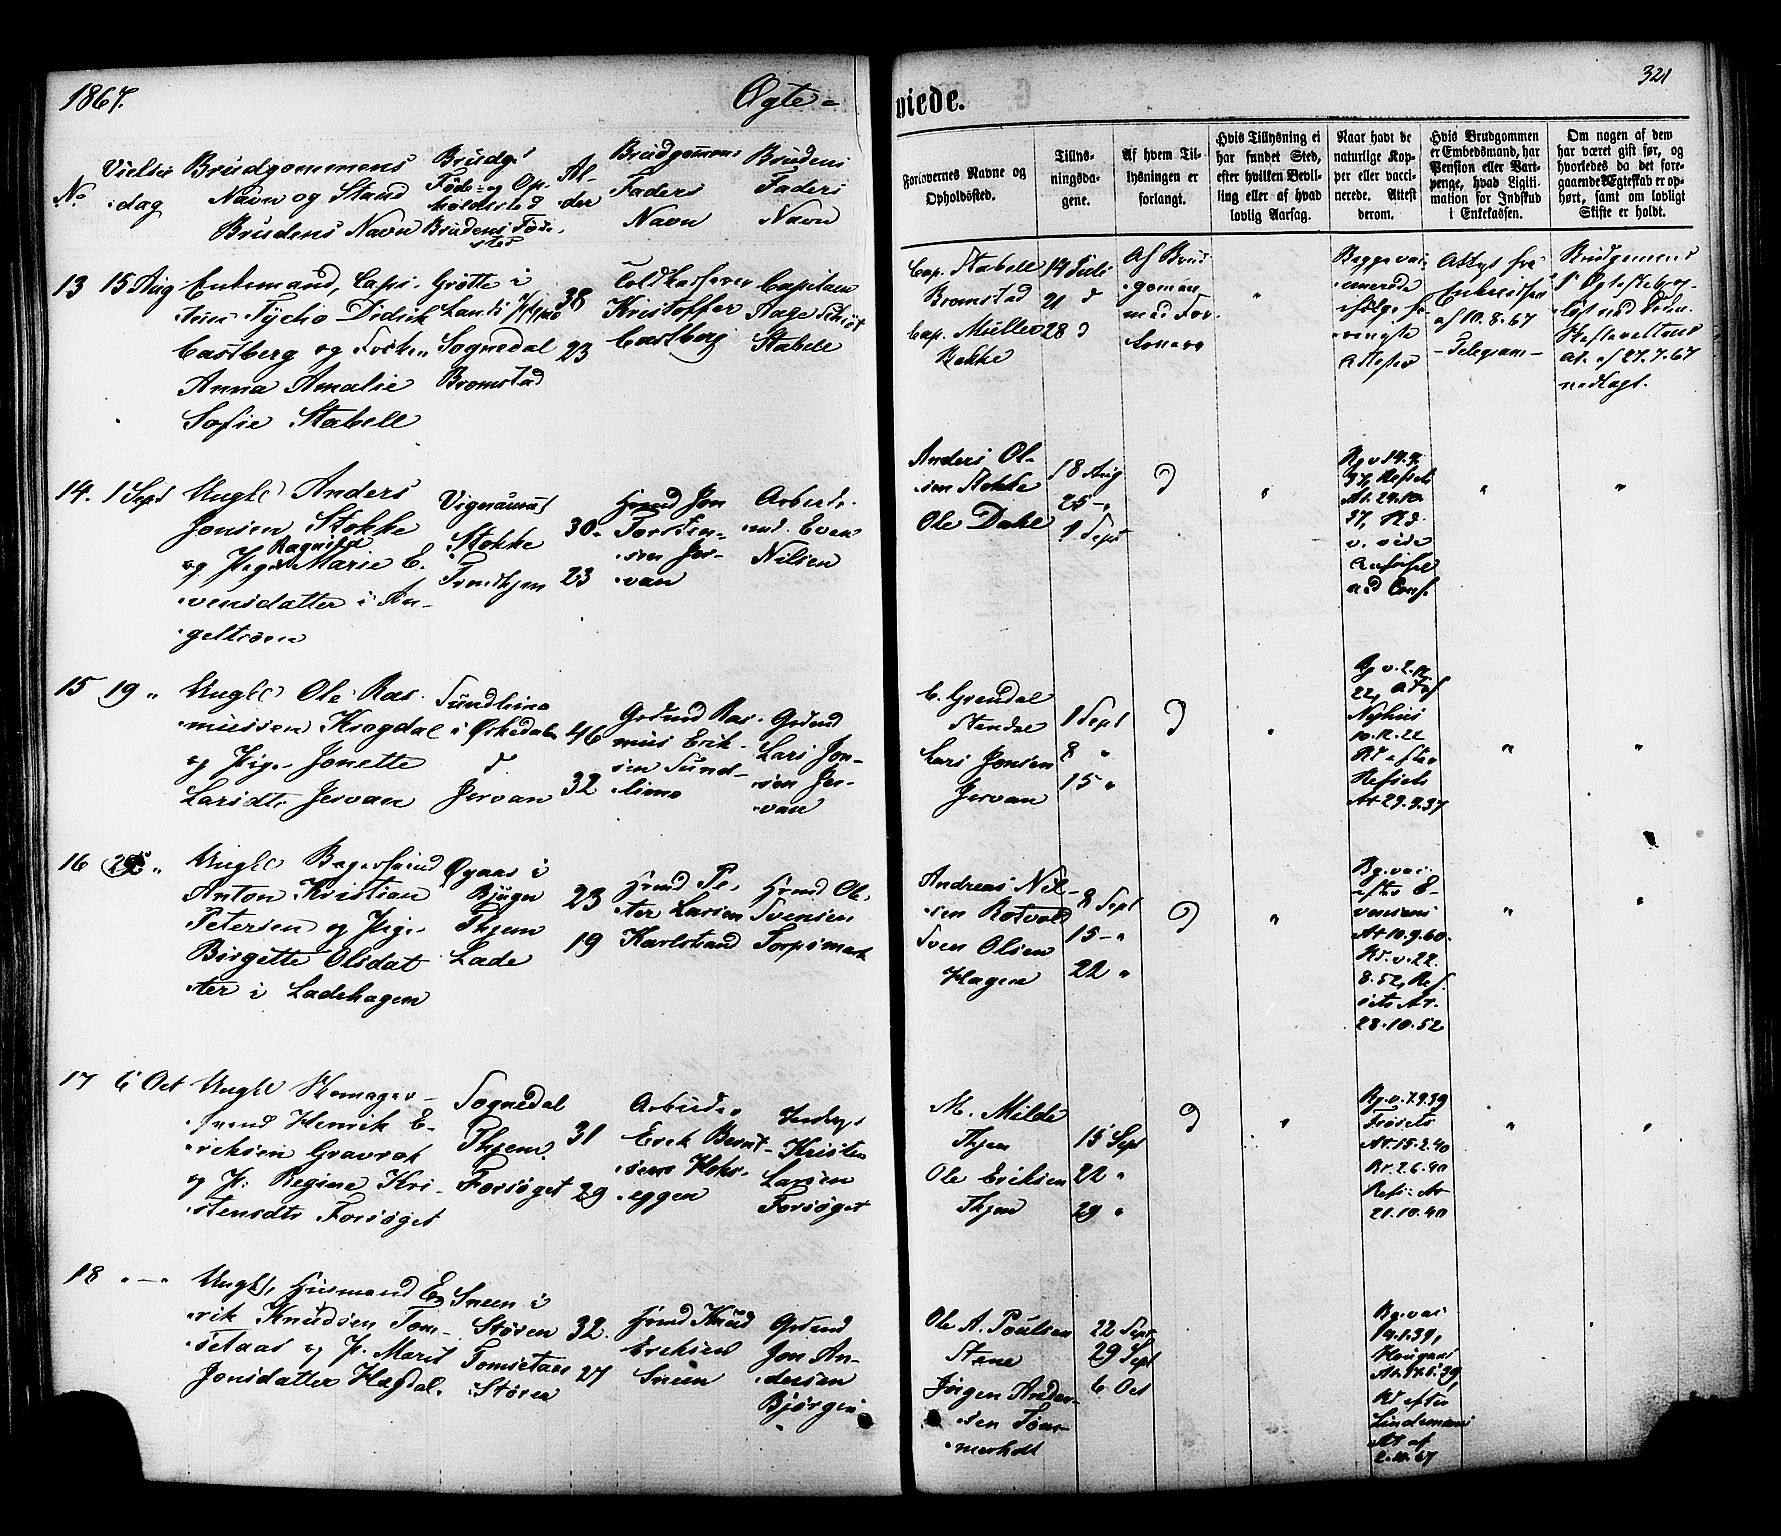 1867.
Ægte-
viede.
321
No
Vielses
dag
Brudgommens
Navn og Stand
Brudens Navn
Brudgs
Føde- og Op-
holdssted
Brudens Føde
sted
Al-
der
Brudgommens
Faders
Navn
Brudens
Faders
Navn
Forlovernes Navne og
Opholdssted.
Tillys-
ningsda-
gene.
Af hvem Til-
lysningen er
forlangt.
Hvis Tillysning ei
har fundet Sted,
efter hvilken Bevil-
ling eller af hvad
lovlig Aarsag.
Naar havt de
naturlige Kop-
per eller vacci-
nerede. Attest
derom.
Hvis Brudgommen
er Embedsmand, har
Pension eller Vart-
penge, hvad Ligiti-
mation for Indskud
i Enkekassen.
Om nogen af dem
har været gift før, og
hvorledes da det fore-
gaaende Ægteskab er op-
hørt, samt om lovligt
Skifte er holdt.
13 15 Aug
Enkemand, Capi-
Tycho Didrik
Castberg og Frøken
Anna Amalie
Sofie Stabell
Grøtte i
Sognedal
Bromstad
38
23
Toldkasserer
Kristoffer
Castberg
Capitain
Aage
Stabell
Cap. Stabell
Bromstad
Cap. Müller
Rakke
14 Juli
21 d
28 d
Af Brud-
gommen
med For-
lovere
"
Begge vac-
cinerede
ifølge fo-
reviste
Attester
Attest fra
Enkekassen
af 10.8.67
- Telegram -
Brudgommens
1ste Ægteskab op-
løst ved Døden
Skifterettens
at. af 27.7.67
nedlagt.
14. 1 Sept
Ungkl Anders
Jonsen Stokke
Ragnild
og Pige Marie E-
vensdatter i An-
geltrøen
Stokke
Trondhjem
30
23
Jon
Torsten-
sen Jer-
van
Arbeids-
md. Even
Nilsen
Anders Ol-
sen Stokke
Ole Dahl
18 Aug
25 - "
1 Sept
d
"
Rg v 14.9.
37, Refsets
At. 29.10.
37, Kd.
v. vide
ad Conf.
"
"
15 19 "
Ungkl Ole Ras-
mussen Krogdal
og Pige Jonette
Larsdtr Jervan
Sundlimo
i Ørkedalen
d
Jervan
46
32
Grdmd Ras-
mus Erik-
sen Sund-
limo
Grdmd
Lars Jon-
sen Jer-
van
C. Grendal
Stendal
Lars Jonsen
Jervan
1 Sept
8 "
15 "
d
"
Bg v. 2.12
22, Attest
Nyhus
10.12.22
Bd efter
Refsets
At 29.9.37
"
"
16 29 "
Ungkl Bagersvend
Anton Kristian
Petersen og Pige
Birgitte Olsdat-
ter i Ladehagen
Øgaas i
Bjugn
Thjem
Lade
23
19
Hmd Pe-
ter Larsen
Karlstrand
Hmd Ole
Svensen
Torpsmark
Andreas Nil-
sen Rotvold
Sven Olsen
Hagen
8 Sept
15 - "
22 "
d
"
Bg. vac.
efter E-
vensens
At 10.9.60.
Bd. v. 22.
8.52, Ref-
sets At.
28.10.52
"
"
17 6 Oct
Ungkl Skomager-
svend Henrik E-
riksen Gravrok
og P. Regine Kri-
stensdtr Forsøget
Sognedal
Thjem.
Forsøget
31
29
Arbeider
Erik Bernt-
sen Heks-
eggen
Inderst
Kristen
Larsen
Forsøget
M. Milde
Thjem
Ole Eriksen
Thjem
15 Sept
22 "
29 "
d
"
Bg. v. 7.9.39
Frosets
At. 15.2.40
Br. 2.6.40
Refs: At
21.10.40
"
"
18 " — "
Ungkl, Husmand E-
rik Knudsen Tom-
setaas og P. Marit
Jonsdatter Hagdal.
Sneen i
Støren
Tomsetaas
Støren
32.
27
Hmd Knud
Eriksen
Sneen
Grdmd
Jon An-
dersen
Bjørgen
Ole A. Poulsen
Stene
Jørgen Ander-
sen Tøm-
merholt
22 Sept
29 Sept
6 Oct
Bg. vac
14.1.39,
Haugans
At. 14.5.29,
Bd efter
Lindemans
At af
2.10.67